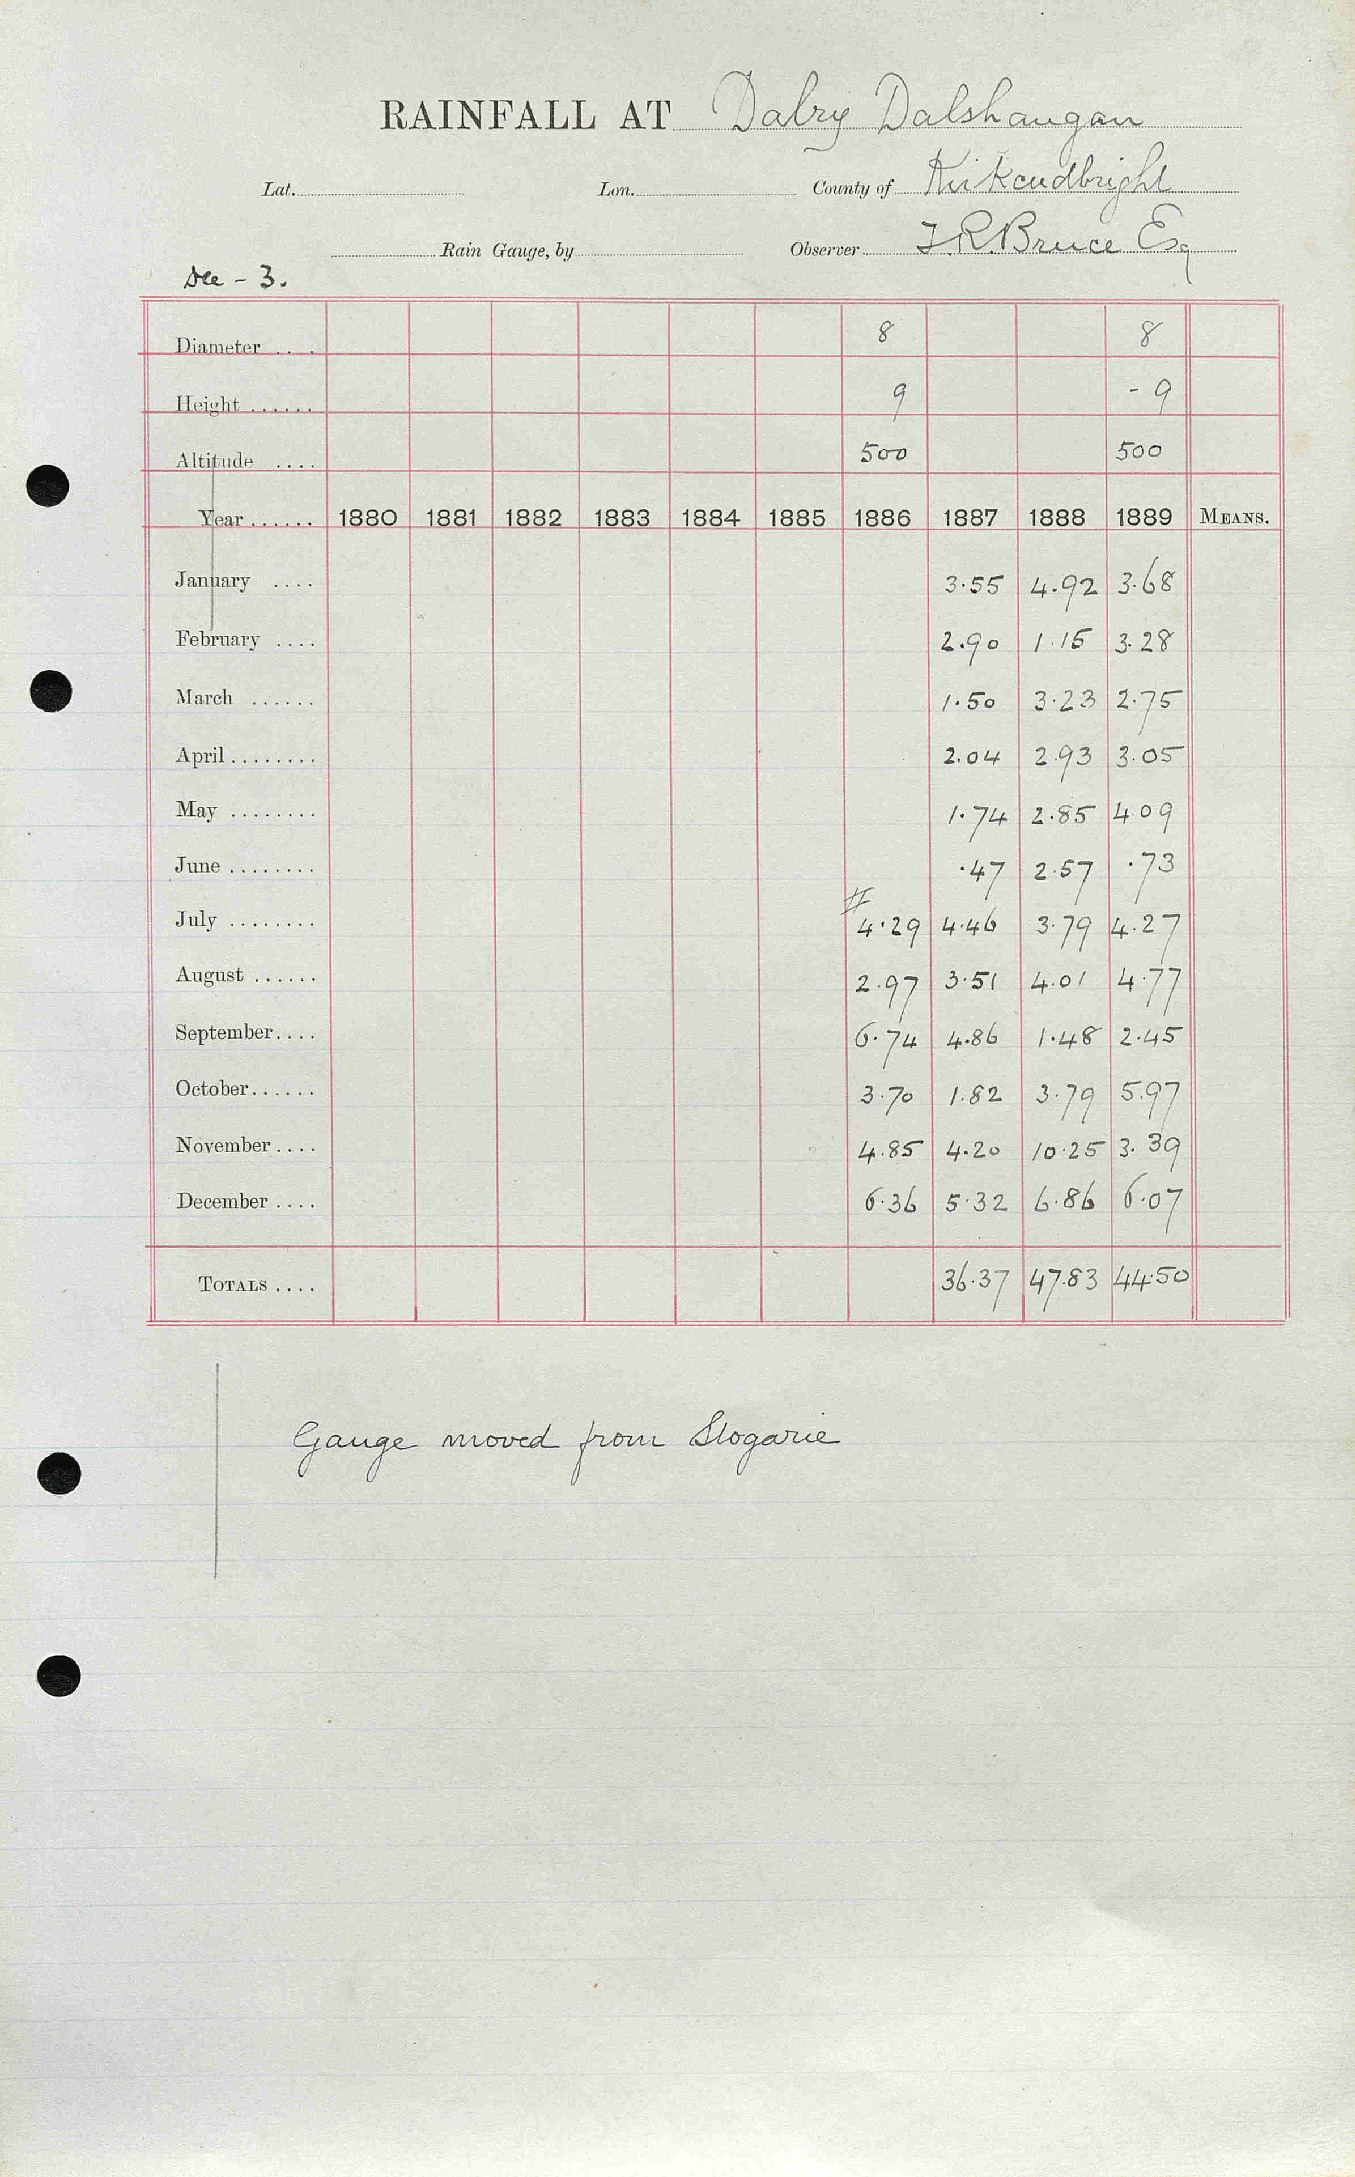 RAINFALL AT Dalry Dalshangan
Lat. Lon. County of Kirkcudbright
Rain Gauge, by Observer J.R. Bruce Esq
Dee - 3.
Diameter .. . 8 8
Height ...... 9 - 9
Altitude .... 500 500
Year ...... 1880 1881 1882 1883 1884 1885 1886 1887 1888 1889 MEANS.
January .... 3.55 4.92 3.68
February .... 2.90 1.15 3.28
March ...... 1.50 3.23 2.75
April ........ 2.04 2.93 3.05
May ........ 1.74 2.85 4.09
June ........ .47 2.57 .73
#
July ........ 4.29 4.46 3.79 4.27
August ...... 2.97 3.51 4.01 4.77
September.... 6.74 4.86 1.48 2.45
October...... 3.70 1.82 3.79 5.97
November .... 4.85 4.20 10.25 3.39
December .... 6.36 5.32 6.86 6.07
TOTALS .... 36.37 47.83 44.50
Gauge moved from Slogarie